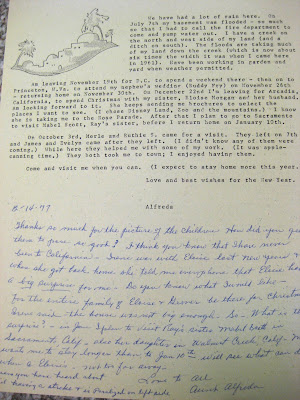 We have had a lot of rain here. On
July 7th my basement was flooded - so much
so that I had to call the fire department to
come and pump water out. I have a creek on
the north and west side of my land (and a
ditch on south). The floods are taking much
of my land down the creek (which is now about
six times the width it was when I came here
in 1961). I have been working in garden and
yard when weather permitted.
Am leaving November 19th for D.C. to spend a weekend there - then on to
Princeton, N.Y., to attend my nephew's wedding (Buddy Fry) on November 26th
- returning home on November 30th. On December 22nd I'm leaving for Arcadia,
California, to spend Christmas with my niece Eloise Monger and her husband.
Am looking forward to it. She keeps sending me brochures to select the
places I want to see. I chose Disney Land, Zoo and the mountains. I know
she is taking me to the Rose Parade. After that I plan to go to Sacramento
to visit Mabel Scott, Ray's sister, before I return home on January 10th.
On October 3rd, Merle and Ruthie S. came for a visit. They left on 7th
and James and Evelyn came after they left. (I didn't know any of them were
coming.) While here they helped me with some of my work. (It was apple-
canning time.) They both took me to town; I enjoyed having them.
Come and visit me when you can. (I expect to stay home more this year.
Love and best wishes for the New Year.
Alfreda
Thanks so much for the picture of the children. How did you get
them to pose so good? I think you knew that I have never
been to California. Irene was with Eloise last New Years &
when she got back home she told me everyone that Eloise had
a big surprise for me. Do you know what
For the entire family of Eloise &
Irene said the house was not big enough. So - What is the
surprise? - in Jan I plan to visit Ray's sister Mabel Scott in
Sacramento, Calif. also her daughter in Walnut Creek Calif.
wants me to stay longer than to Jan 10th. will see what can do
when
you have heard about
having a stroke & is Paralyzed on left side
Love to all
Aunt Alfreda